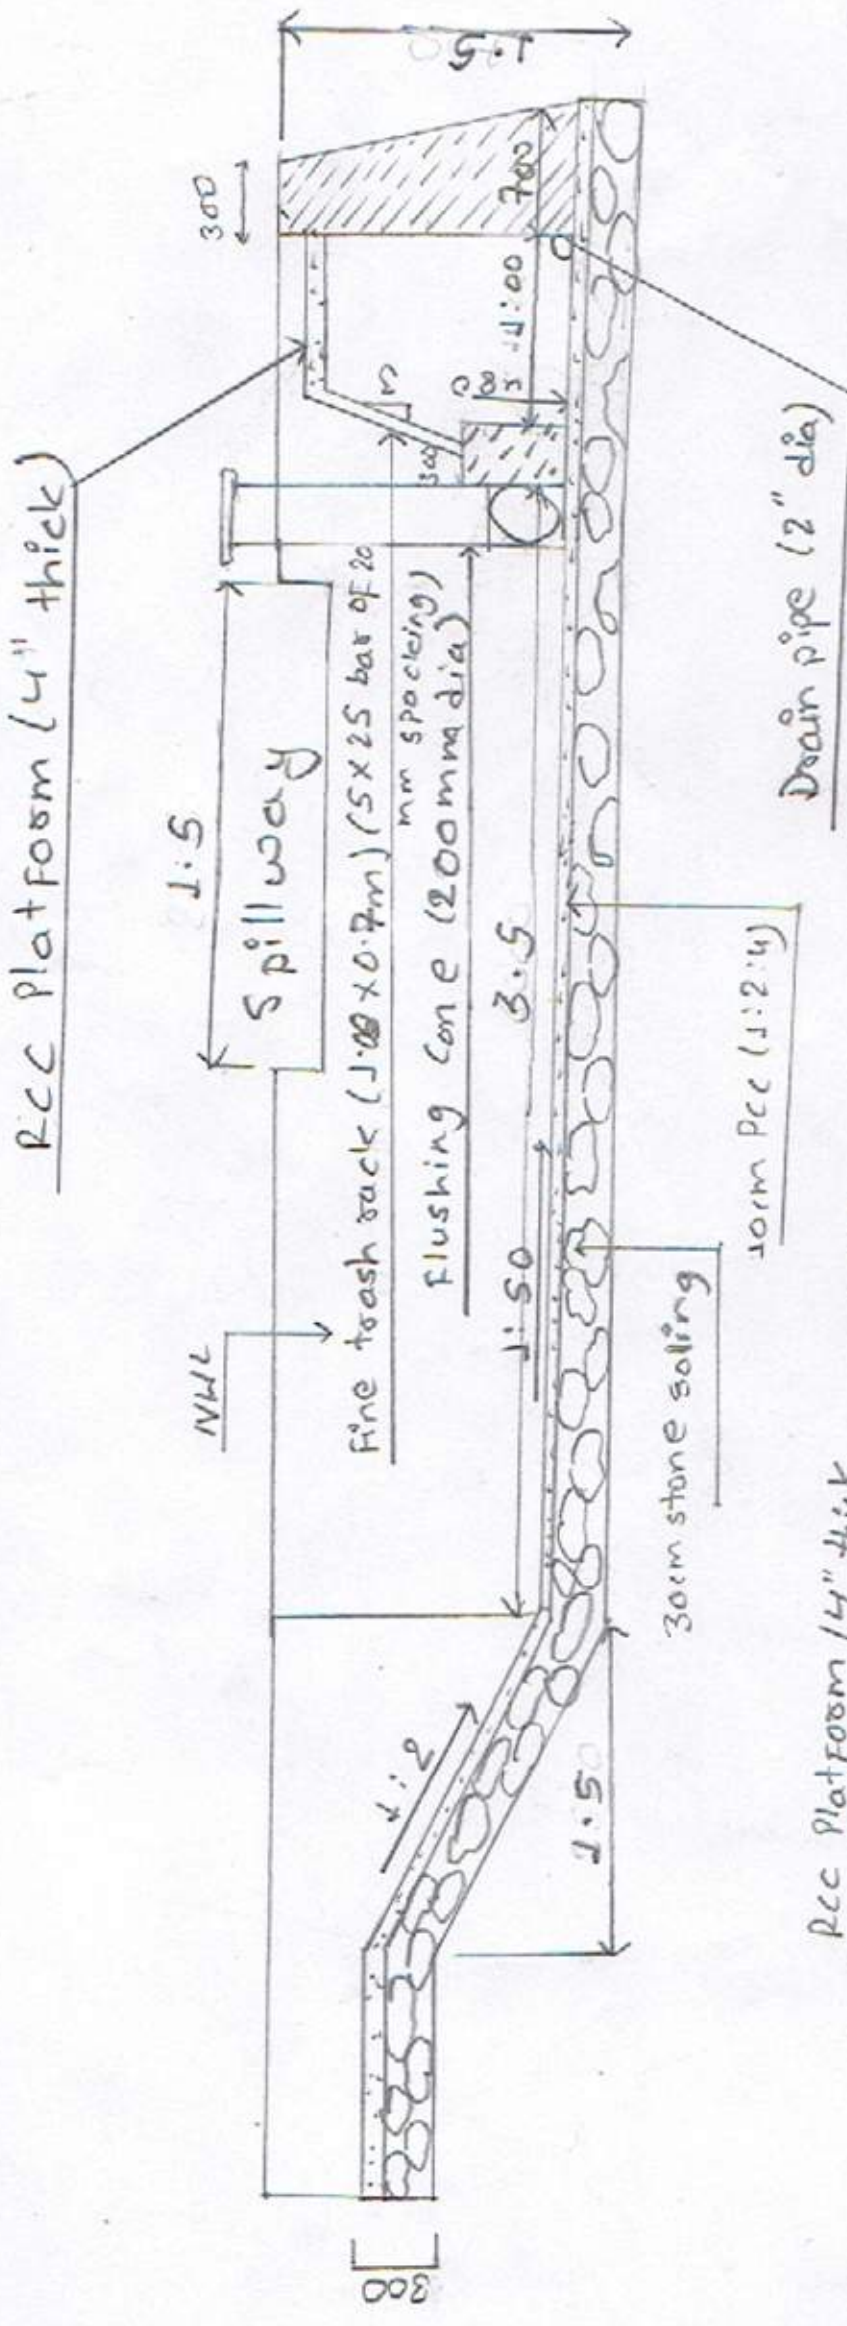 RCC Platform (4" thick)
1:5
Spillway
300
1.5
NWL
Fine trash rack (1.00 x 0.7m) (5x25 bar of 20
mm spacking)
Flushing Cone (200mm dia)
300
3
300
1:00
700
3.5
1:50
1:2
1.5
300
30cm stone soling
10cm PCC (1:2:4)
Drain pipe (2" dia)
RCC Platform (4" thick